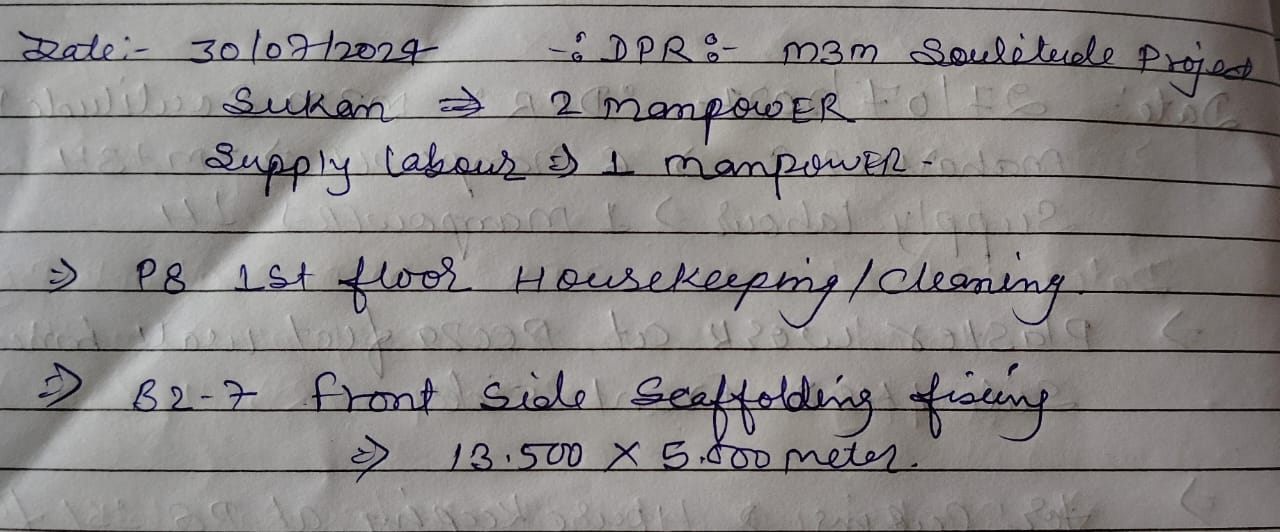 Date:- 30/07/2024 -: DPR :- M3M Soulitude Project
Sukan ⇒ 2 manpowER
Supply labour ⇒ 1 manpowER-
⇒ P8 1st floor Housekeeping/Cleaning.
⇒ B2-7 front side Scaffolding fixing
⇒ 13.500 X 5.000 meter.